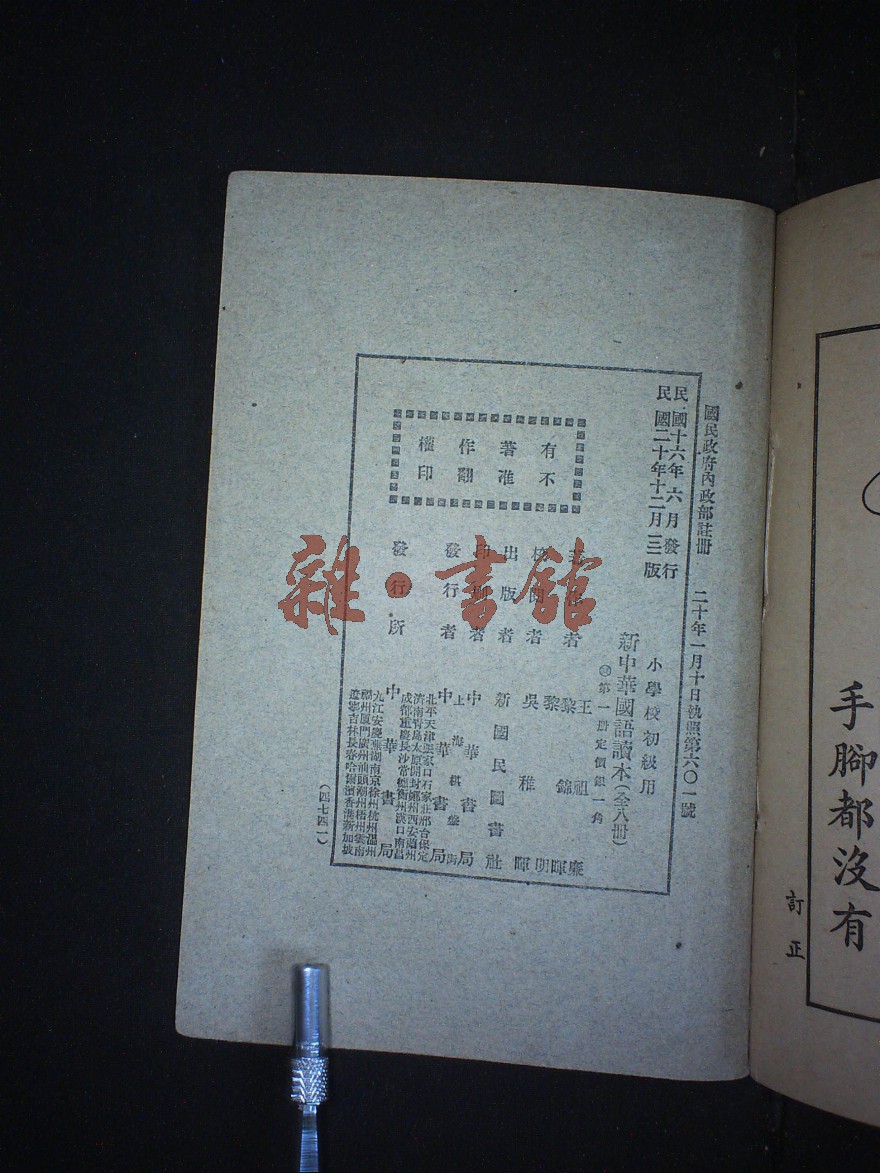 國民政府內政部註冊 二十年一月十日執照第六〇一號
民國十六年六月發行
民國二十年十二月三版
小學校初級用
新中華國語讀本(全八冊)
第一册定價銀一角
有著作權
不准翻印
著者
王祖廉
黎錦暉
黎明
校閱者 吳稚暉
出版者 新國民圖書社
印刷者 中華書局
上海棋盤街
發行者 中華書局
發行所 中華書局
北平天津張家口石家莊邢台保定
濟南青島太原開封鄭州西安蘭州
成都重慶長沙常德衡州漢口南昌
九江安慶蕪湖南京徐州杭州溫州
福州廈門廣州汕頭潮州梧州雲南
遼寧吉林長春哈爾濱香港新加坡
(四七四一)
雜·書館
手腳都沒有
訂正